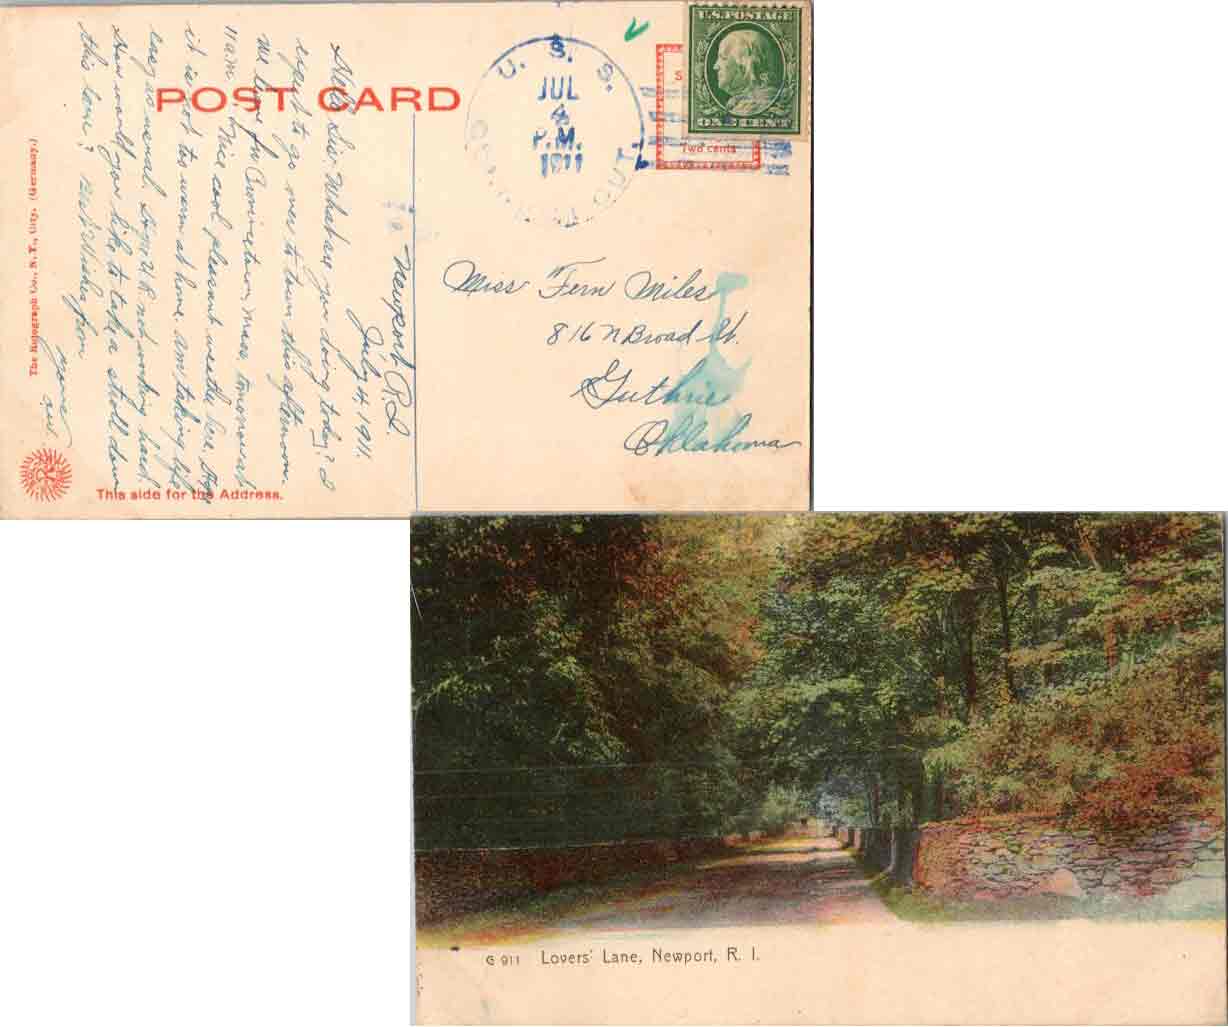 POST CARD
U. S. S.
JUL
4
P.M.
1911
CONNECTICUT.
U.S. POSTAGE
ONE CENT
Two cents
Newport R.I.
July 4 1911.
Hello Sis- What are you doing today? I
expect to go over to town this afternoon.
We leave for Provincetown, Mass, tomorrow at
11 a.m. Nice cool pleasant weather here. Hope
it is not too warm at home. Am taking life
easy as usual. Hope U R not working hard.
How would you like to take a stroll down
this lane? Best Wishes from
Miss Fern Miles
816 N Broad St.
Guthrie
Oklahoma
The Rotograph Co., N. Y., City. (Germany.)
This side for the Address.
G 911 Lovers' Lane, Newport, R. I.